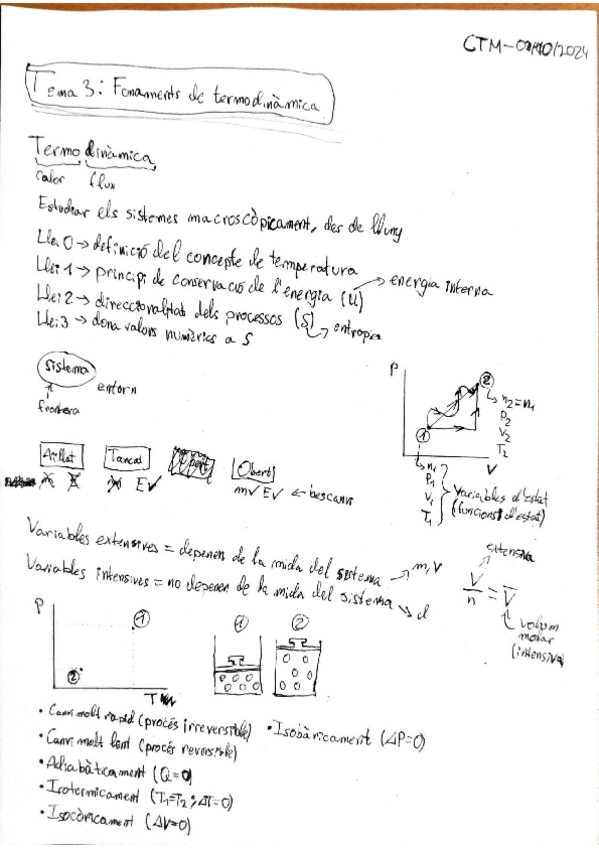 CTM-09/10/2024
Tema 3: Fonaments de termodinàmica
Termodinàmica
calor flux
Estudiar els sistemes macroscòpicament, des de lluny
Llei 0 → definició del concepte de temperatura
Llei 1 → principi de conservació de l'energia (U) → energia interna
Llei 2 → direccionalitat dels processos (S) → entropia
Llei 3 → dona valors numèrics a S
sistema
entorn
frontera
P
①
②
V
n₂=n₁
P₂
V₂
T₂
n₁
P₁
V₁
T₁
Variables d'estat
(funcions d'estat)
Aïllat Tancat Obert
m E m E✓ m✓ E✓ ← bescanvi
Variables extensives = depenen de la mida del sistema → m, V
Variables intensives = no depenen de la mida del sistema → d
extensiva
V/n = V̅
volum
molar
(intensiva)
P
①
②
T
① ②
• Canvi molt ràpid (procés irreversible) • Isobàricament (ΔP=0)
• Canvi molt lent (procés reversible)
• Adiabàticament (Q=0)
• Isotèrmicament (T₁=T₂; ΔT=0)
• Isocòricament (ΔV=0)